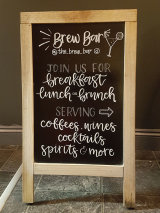 Brew Bar
@the_brew_bar
JOIN US FOR
breakfast
lunch - brunch
SERVING
coffees, wines
cocktails
spirits & more